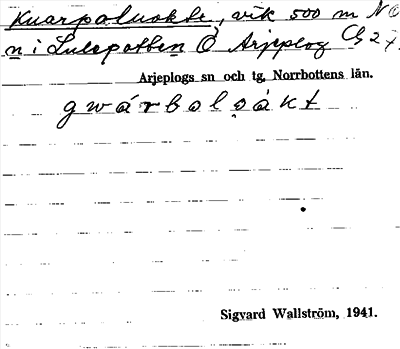 Kuarpaluokte, vik 500 m NO
n i Lulepotten Ö Arjeplog
Arjeplogs sn och tg, Norrbottens län.
gwárbolọákt
Sigvard Wallström, 1941.